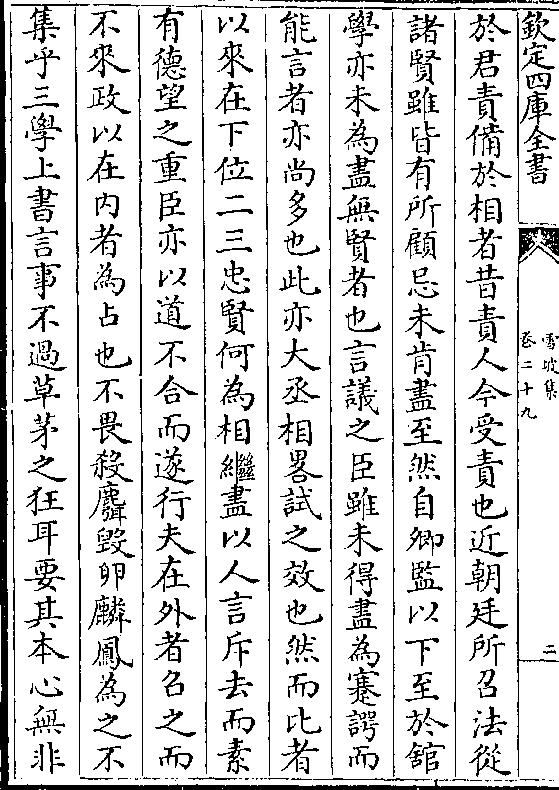 欽定四庫全書
雪坡集
卷二十九
二
於君責備於相者昔責人今受責也近朝廷所召法從
諸賢雖皆有所顧忌未肯盡至然自卿監以下至於舘
學亦未為盡無賢者也言議之臣雖未得盡為蹇諤而
能言者亦尚多也此亦大丞相畧試之效也然而比者
以來在下位二三忠賢何為相繼盡以人言斥去而素
有德望之重臣亦以道不合而遂行夫在外者召之而
不來政以在内者為占也不畏殺麛毀卵麟鳳為之不
集乎三學上書言事不過草茅之狂耳要其本心無非